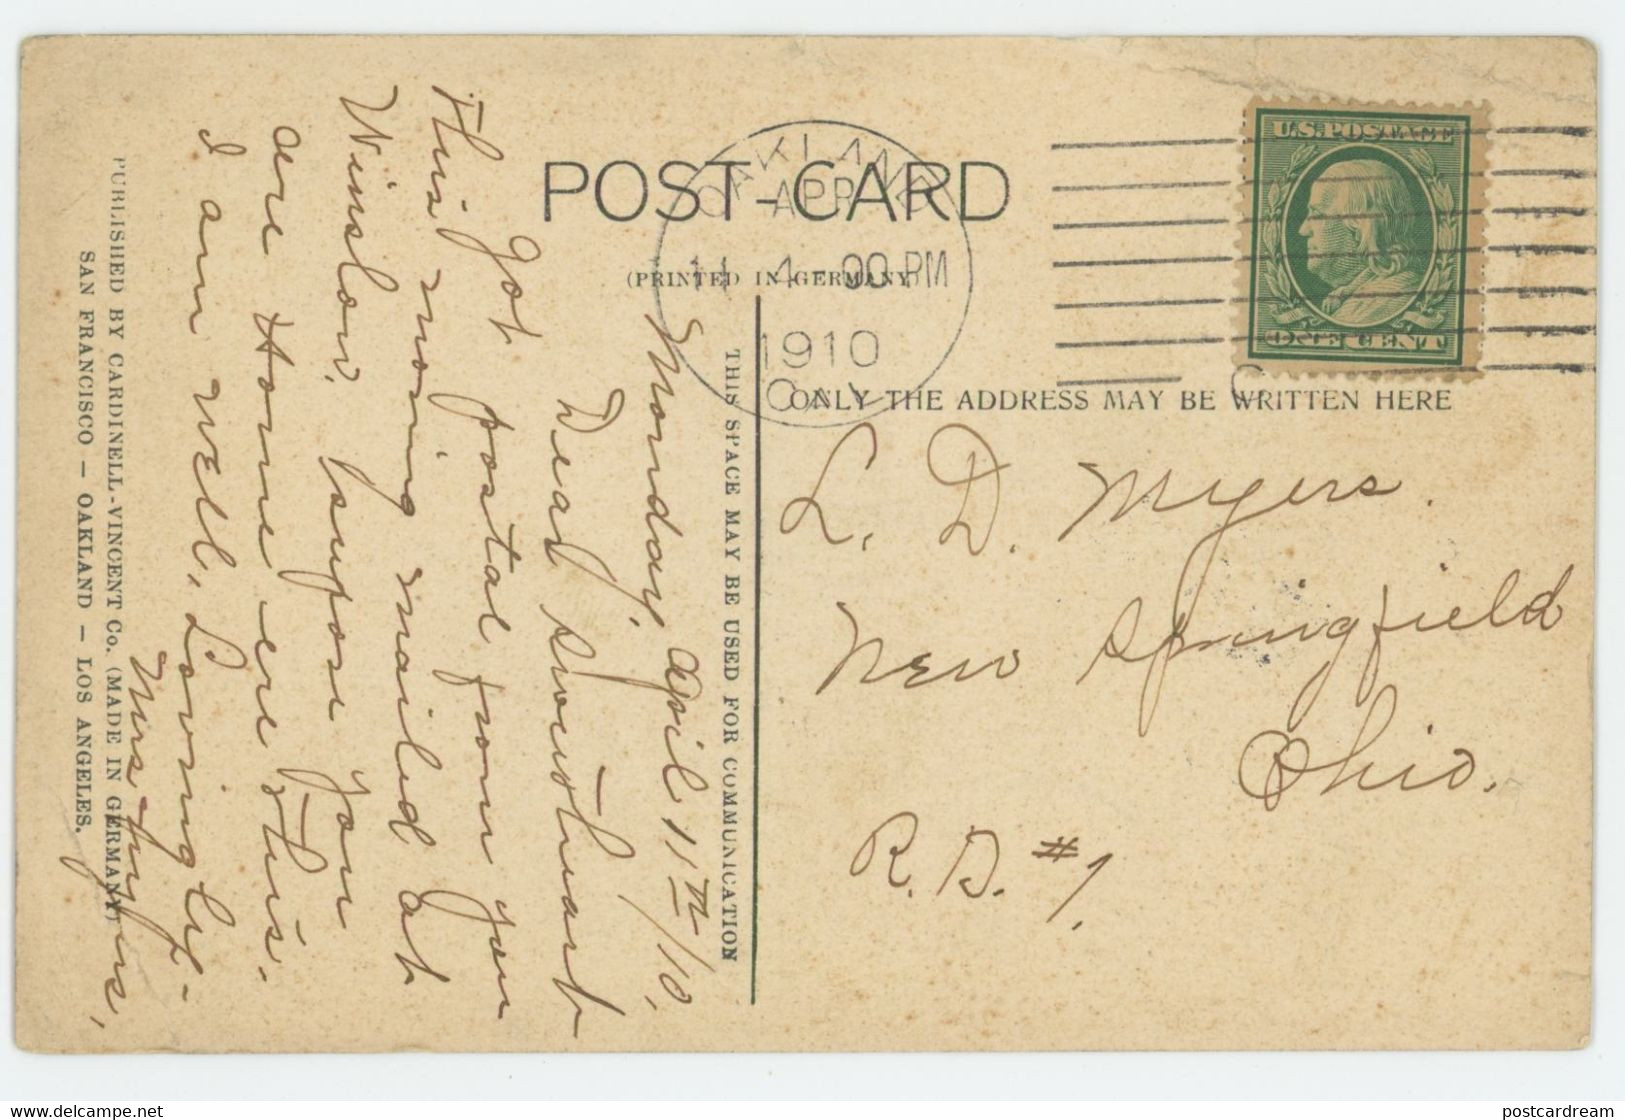 POST-CARD
(PRINTED IN GERMANY)
OAKLAND
APR
11 4-00 PM
1910
CAL
U.S. POSTAGE
ONE CENT
THIS SPACE MAY BE USED FOR COMMUNICATION
ONLY THE ADDRESS MAY BE WRITTEN HERE
Monday, April 11th/10,
Dear Sweetheart
Got postal from you
this morning mailed at
Winslow, supose you
are Home ere this.
I am well, Lovingly-
Mrs Myers,
L. D. Myers.
New Springfield
Ohio.
R. D. #1.
PUBLISHED BY CARDINELL-VINCENT Co. (MADE IN GERMANY)
SAN FRANCISCO - OAKLAND - LOS ANGELES.
www.delcampe.net
postcardream